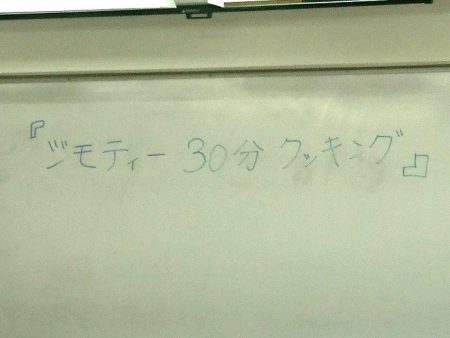 『ジモティー 30分 クッキング』